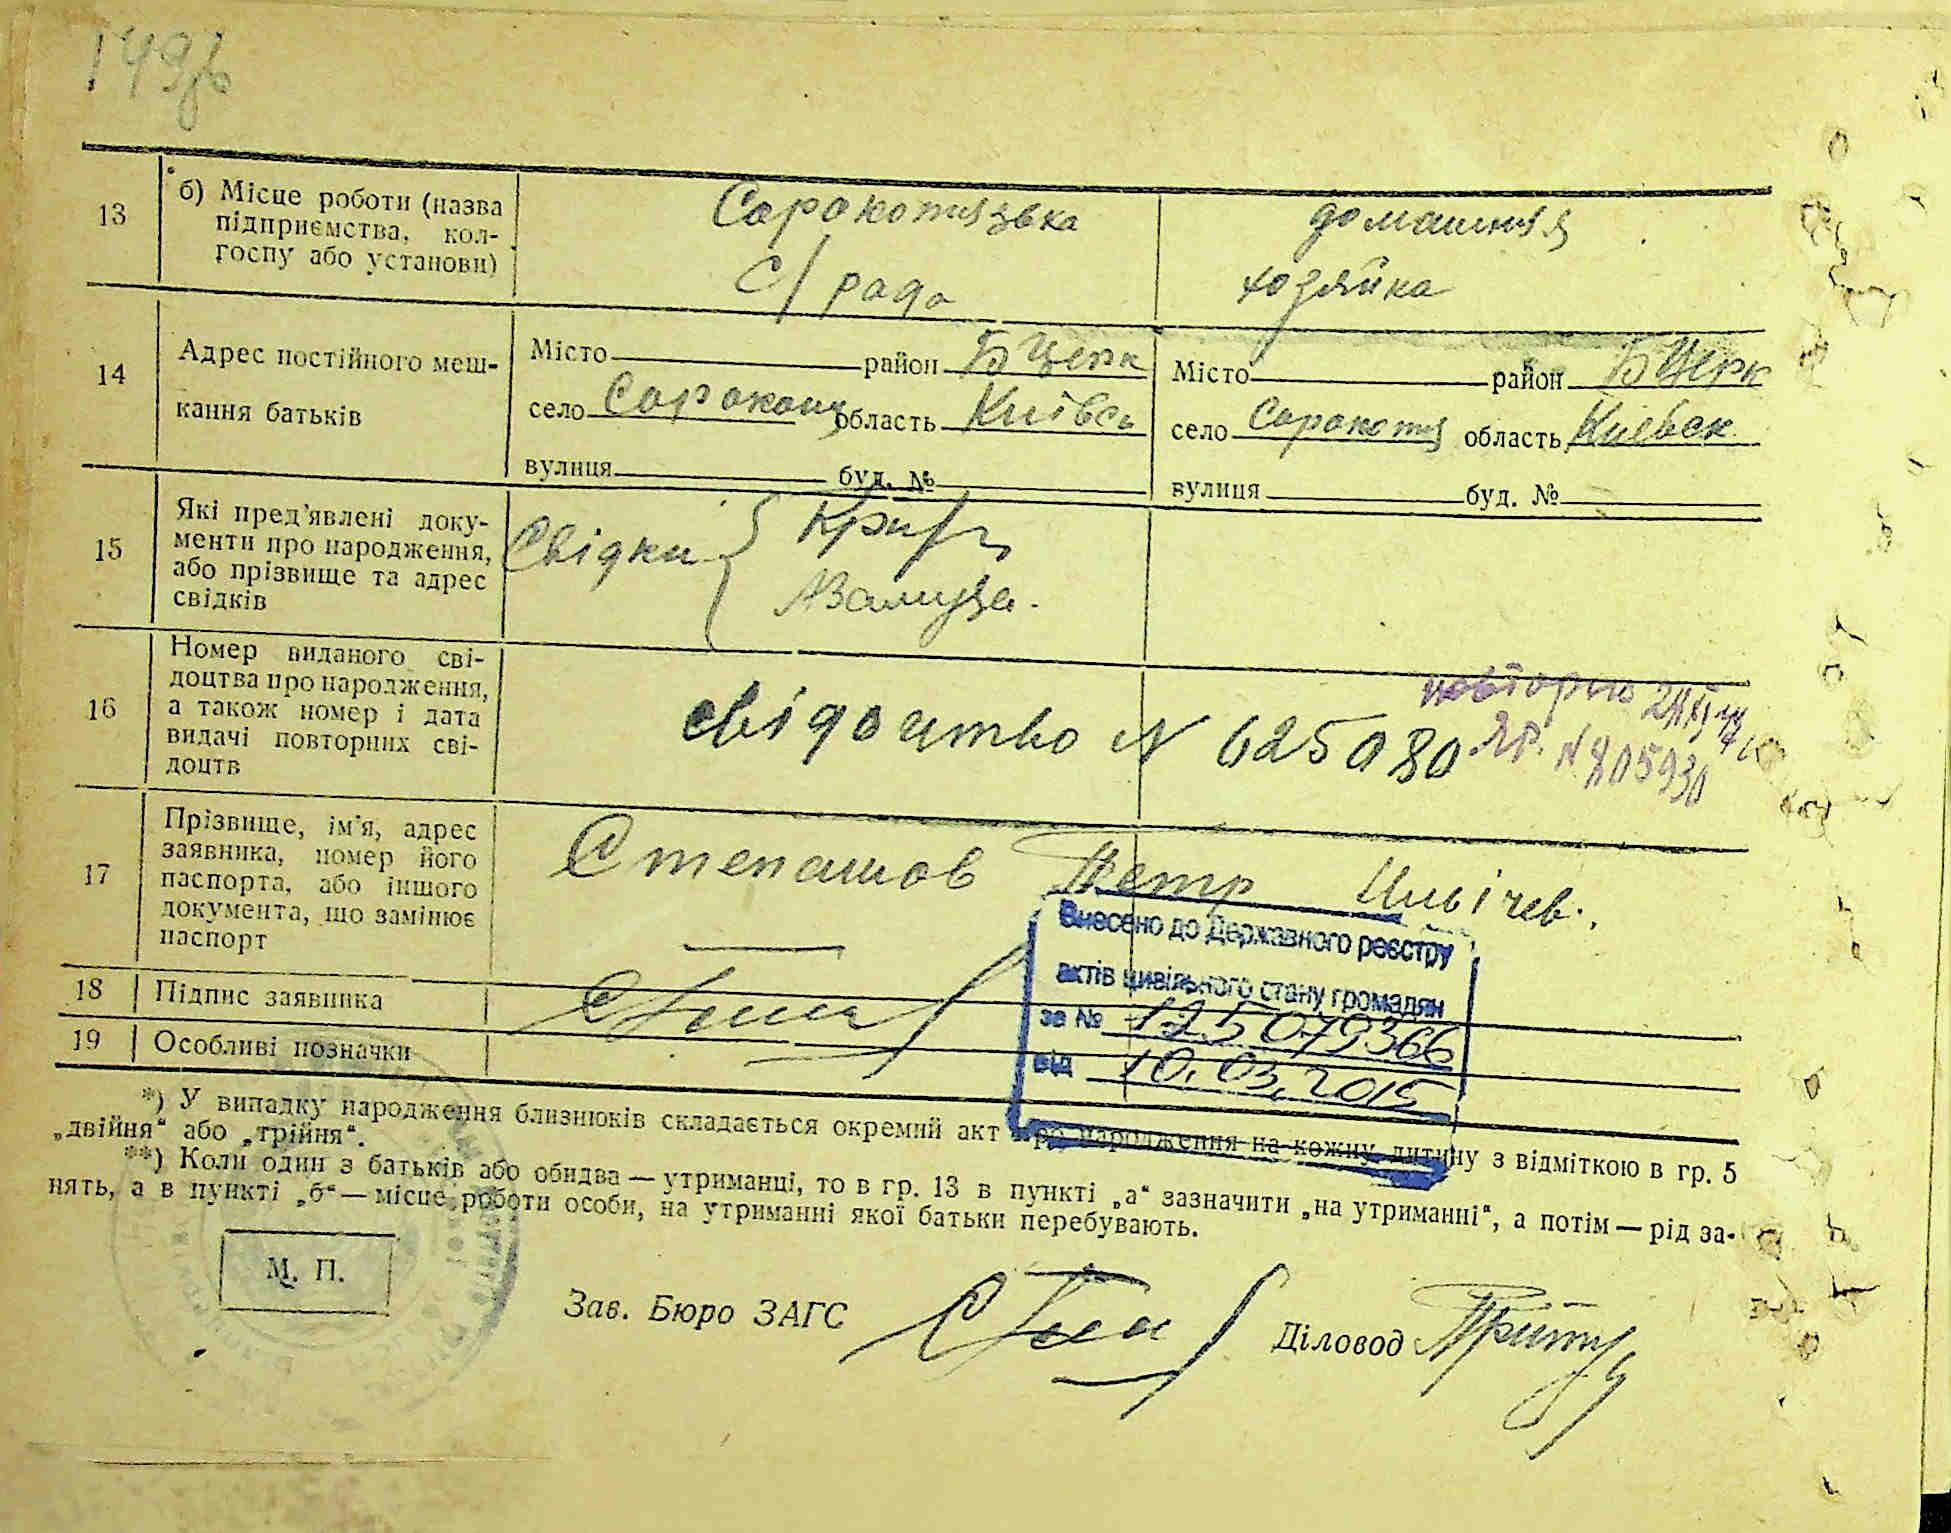 13
б) Місце роботи (назва
підприємства, кол-
госпу або установи)
Сорокотязька
С/рада
домашня
хозяйка
14
Адрес постійного меш-
кання батьків
Місто район Б Церк
село Сорокотяг область Київсь
вулиця буд. №
Місто район Б Церк
село Сорокотяг область Київськ
вулиця буд. №
15
Які пред'явлені доку-
менти про народження,
або прізвище та адрес
свідків
Свідки
16
Номер виданого сві-
доцтва про народження,
а також номер і дата
видачі повторних сві-
доцтв
свідоцтво N 625080
повторно
N 805930
17
Прізвище, ім'я, адрес
заявника, номер його
паспорта, або іншого
документа, що замінює
паспорт
Степашов Петр
Внесено до Державного реєстру
актів цивільного стану громадян
за № 125079366
від 10.03.2015
18 Підпис заявника
19 Особливі позначки
*) У випадку народження близнюків складається окремий акт про народження на кожну дитину з відміткою в гр. 5
„двійня“ або „трійня“.
**) Коли один з батьків або обидва — утриманці, то в гр. 13 в пункті „а“ зазначити „на утриманні“, а потім — рід за-
нять, а в пункті „б“ — місце роботи особи, на утриманні якої батьки перебувають.
М. П.
Зав. Бюро ЗАГС
Діловод